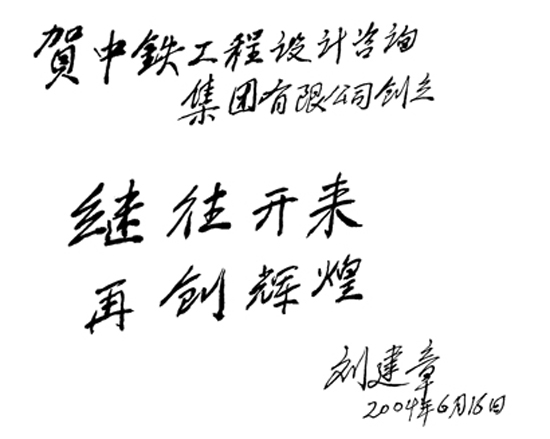 賀中鉄工程设计咨询
集团有限公司创立
继往开来
再创辉煌
刘建章
2004年6月16日